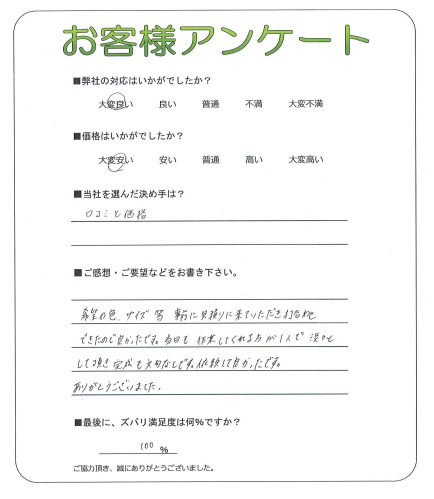 お客様アンケート
■弊社の対応はいかがでしたか？
大変良い 良い 普通 不満 大変不満
■価格はいかがでしたか？
大変安い 安い 普通 高い 大変高い
■当社を選んだ決め手は？
口コミと価格
■ご感想・ご要望などをお書き下さい。
希望の色、サイズ等 事前に見積りに来ていただき打合わせ
できたので良かったです。当日も 作業してくれる方が1人で
して頂き 完成も文句なしです。依頼して良かったです。
ありがとうございました。
■最後に、ズバリ満足度は何%ですか？
100 %
ご協力頂き、誠にありがとうございました。